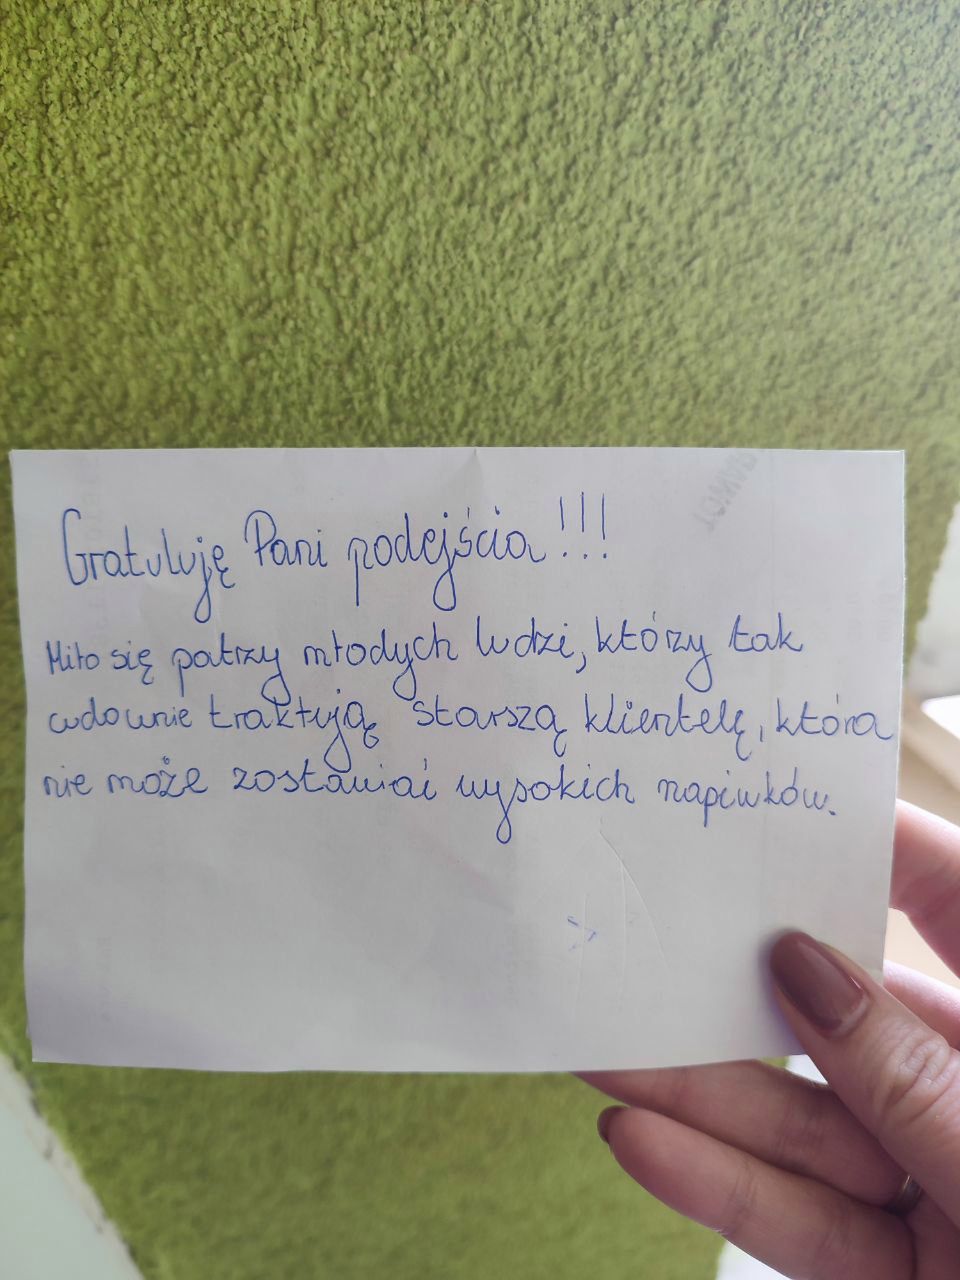 Gratuluję Pani podejścia !!!
Miło się patrzy młodych ludzi, którzy tak
cudownie traktują starszą klientelę, która
nie może zostawiać wysokich napiwków.